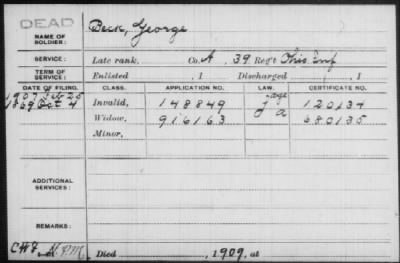 DEAD
Beck, George
NAME OF SOLDIER:
SERVICE: Late rank, Co. A, 39 Reg't Ohio Inf
TERM OF SERVICE: Enlisted , 1 Discharged , 1
DATE OF FILING. CLASS. APPLICATION NO. LAW. CERTIFICATE NO.
1907 Feb 25
1869 Oct 4 Invalid, 148849 120134
Widow, 916163 680135
Minor,
ADDITIONAL SERVICES:
REMARKS:
Died , 1909, at